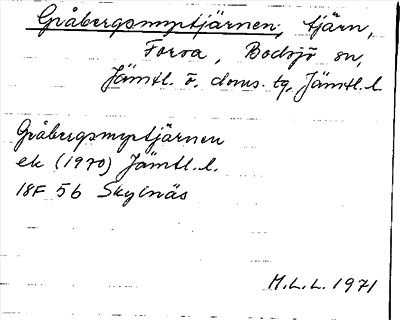 Gråbergsmyrtjärnen, tjärn,
Forsa, Bodsjö sn,
Jämtl. ö. doms. tg, Jämtl. l.
Gråbergsmyrtjärnen
ek (1970) Jämtl. l.
18F 5b Skyinäs
M.L.L. 1971